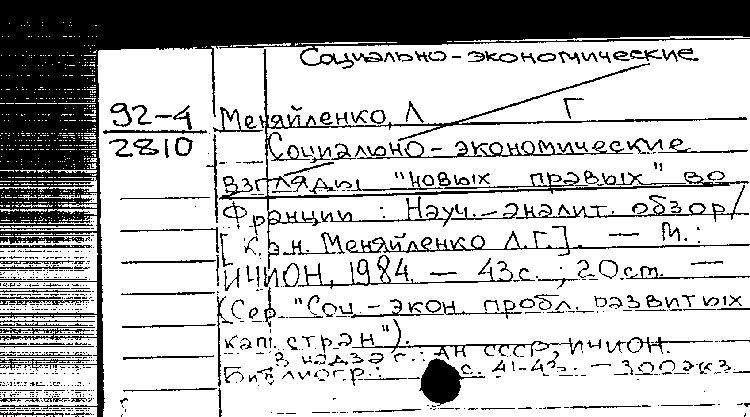 Социально-экономические
92-4 Меняйленко, Л Г
2810 Социально-экономические
взгляды "новых правых" во
Франции : Науч.-аналит. обзор /
[ К.э.н. Меняйленко Л.Г.]. — М.:
ИНИОН, 1984. — 43с. ; 20см. —
(Сер. "Соц-экон. пробл. развитых
кап. стран").
В надзаг.: АН СССР, ИНИОН.
Библиогр.: с. 41-43. — 300экз.